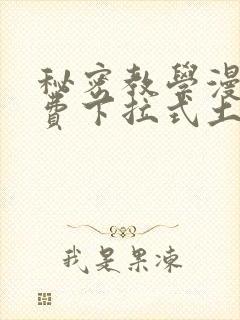 秘密教學漫
費下拉式土
我是果凍